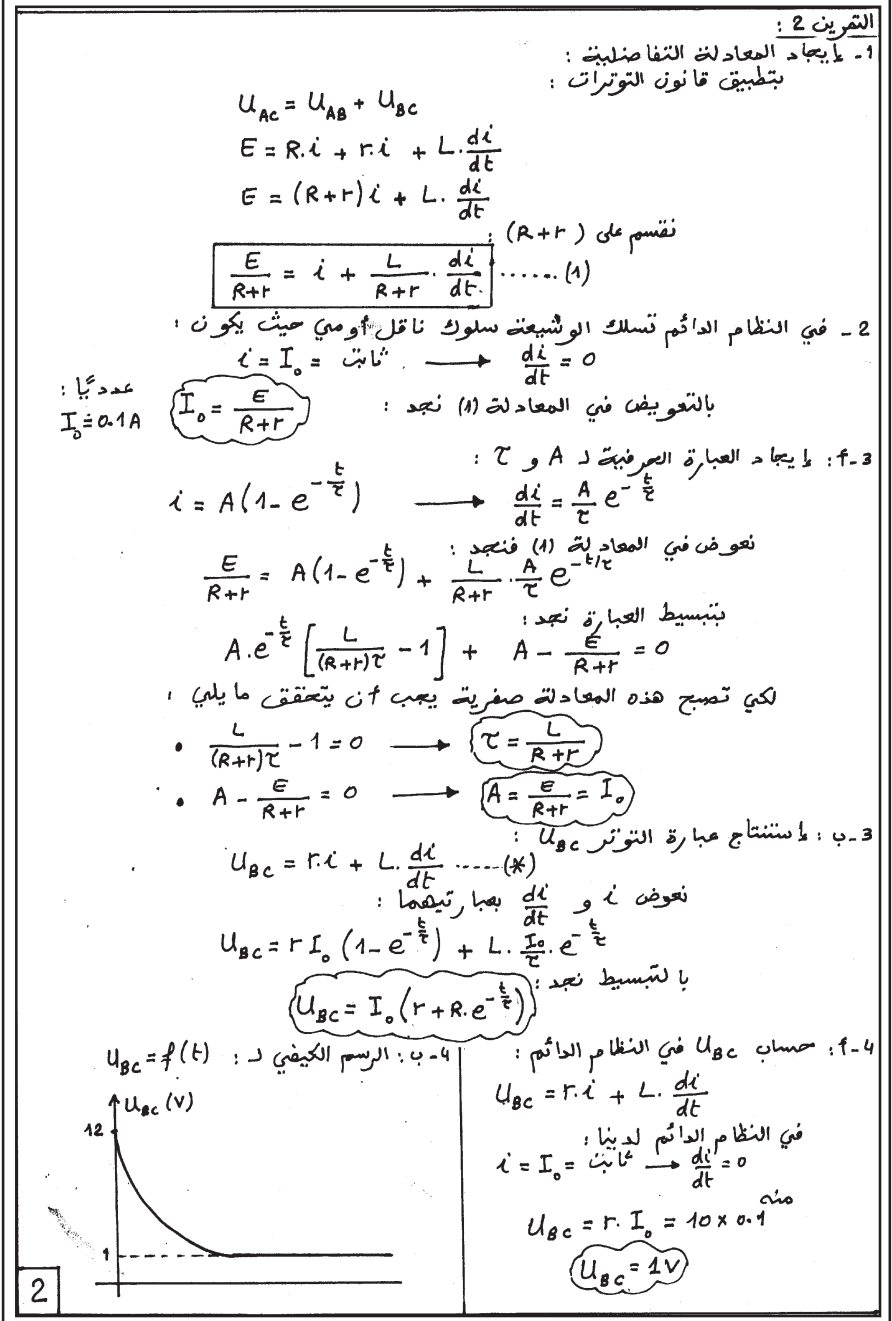 التمرين 2 :
1- إيجاد المعادلة التفاضلية :
بتطبيق قانون التوترات :
U_AC = U_AB + U_BC
E = R.i + r.i + L.di/dt
E = (R+r)i + L.di/dt
نقسم على (R+r) :
E/(R+r) = i + L/(R+r) . di/dt ...... (1)
2- في النظام الدائم تسلك الوشيعة سلوك ناقل أومي حيث يكون :
i = I₀ = ثابت ⟶ di/dt = 0
بالتعويض في المعادلة (1) نجد : I₀ = E/(R+r) عدديًا :
I₀ = 0.1A
3-أ: إيجاد العبارة الحرفية لـ A و τ :
i = A(1- e^(-t/τ)) ⟶ di/dt = A/τ e^(-t/τ)
نعوض في المعادلة (1) فنجد :
E/(R+r) = A(1- e^(-t/τ)) + L/(R+r) . A/τ e^(-t/τ)
بتبسيط العبارة نجد :
A.e^(-t/τ) [L/((R+r)τ) - 1] + A - E/(R+r) = 0
لكي تصبح هذه المعادلة صفرية يجب أن يتحقق مايلي :
• L/((R+r)τ) - 1 = 0 ⟶ τ = L/(R+r)
• A - E/(R+r) = 0 ⟶ A = E/(R+r) = I₀
3-ب : إستنتاج عبارة التوتر U_BC :
U_BC = r.i + L.di/dt ......(*)
نعوض i و di/dt بعبارتيهما :
U_BC = r I₀ (1- e^(-t/τ)) + L. I₀/τ . e^(-t/τ)
بالتبسيط نجد :
U_BC = I₀ (r + R.e^(-t/τ))
4-أ: حساب U_BC في النظام الدائم :
U_BC = r.i + L. di/dt
في النظام الدائم لدينا :
i = I₀ = ثابت ⟶ di/dt = 0
منه
U_BC = r. I₀ = 10 x 0.1
U_BC = 1V
4-ب: الرسم الكيفي لـ : U_BC = f(t)
U_BC (V)
12
1
2